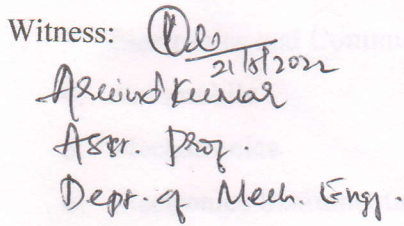 Witness:
21/8/2022
Arvind Kumar
Assr. Prof.
Depr. of Mech. Engg.